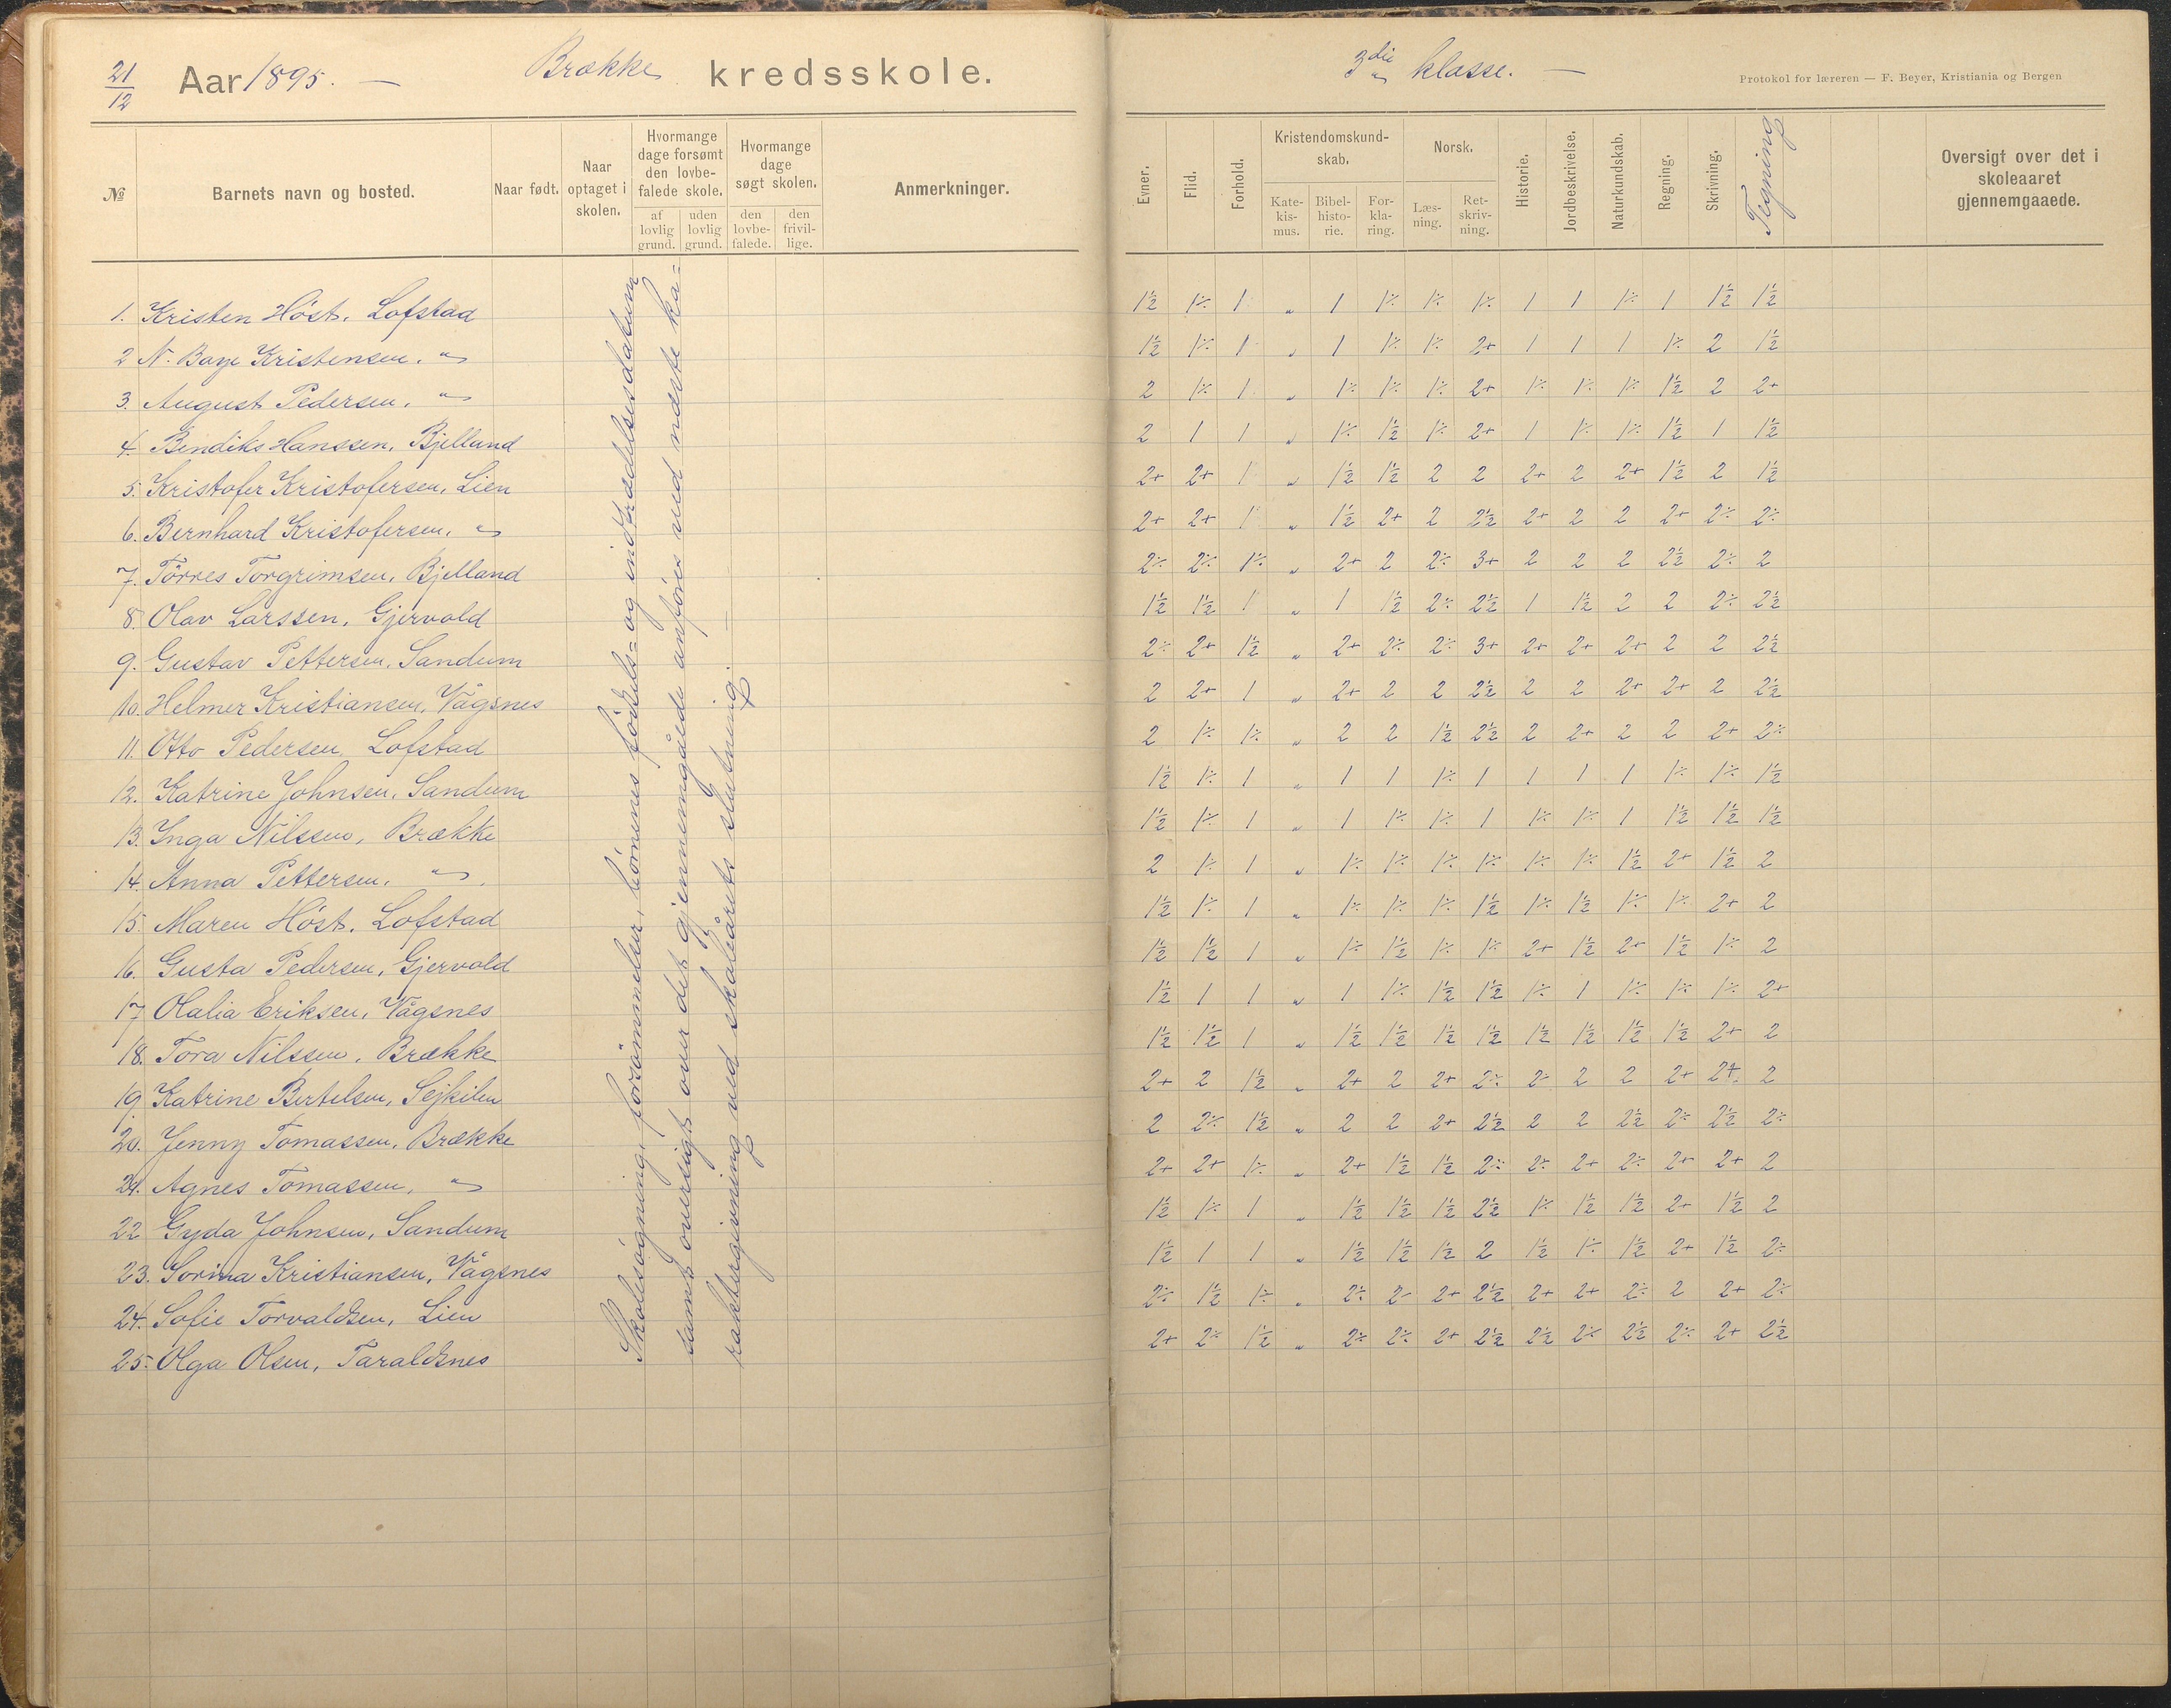 21/12 Aar 1895. — Brække kredsskole.
№
Barnets navn og bosted.
Naar født.
Naar optaget i skolen.
Hvormange dage forsømt den lovbefalede skole.
af lovlig grund.
uden lovlig grund.
Hvormange dage søgt skolen.
den lovbefalede.
den frivillige.
Anmerkninger.
1. Kristen Høst. Lofstad
2 N. Boye Kristensen. "
3. August Pedersen. "
4. Bendiks Hanssen, Bjelland
5. Kristofer Kristofersen, Lien
6. Bernhard Kristofersen. "
7. Tørres Torgrimsen, Bjelland
8. Olav Larssen, Gjervold
9. Gustav Pettersen, Sandum
10. Helmer Kristiansen, Vågsnes
11. Otto Pedersen, Lofstad
12. Katrine Johnsen, Sandum
13. Inga Nilssen, Brække
14. Anna Pettersen. "
15. Maren Høst. Lofstad
16. Gusta Pedersen, Gjervold
17 Olalia Eriksen, Vågsnes
18. Tora Nilssen, Brække
19 Katrine Bertelsen, Sejkilen
20. Jenny Tomassen, Brække
21. Agnes Tomassen, "
22 Gyda Johnsen, Sandum
23. Sorina Kristiansen, Vågsnes
24. Sofie Torvaldsen, Lien
25. Olga Olsen, Taraldsnes
Skolesøgning, forsømmelser, børnenes fødsels- og indtrædelsesdatum
samt oversigt over det gjennemgåede anføres ved næste ka-
raktergivning ved skoleårets slutning. —
3die klasse. —
Protokol for læreren — F. Beyer, Kristiania og Bergen
Evner.
Flid.
Forhold.
Kristendomskundskab.
Katekismus.
Bibelhistorie.
Forklaring.
Norsk.
Læsning.
Retskrivning.
Historie.
Jordbeskrivelse.
Naturkundskab.
Regning.
Skrivning.
Tegning
Oversigt over det i skoleaaret gjennemgaaede.
1½ 1÷ 1 " 1 1÷ 1÷ 1÷ 1 1 1÷ 1 1½ 1½
1½ 1÷ 1 " 1 1÷ 1÷ 2+ 1 1 1 1÷ 2 1½
2 1÷ 1 " 1÷ 1÷ 1÷ 2+ 1÷ 1÷ 1÷ 1½ 2 2+
2 1 1 " 1÷ 1½ 1÷ 2+ 1 1÷ 1÷ 1½ 1 1½
2+ 2+ 1 " 1½ 1½ 2 2 2+ 2 2+ 1½ 2 1½
2+ 2+ 1 " 1½ 2+ 2 2½ 2+ 2 2 2+ 2÷ 2÷
2÷ 2÷ 1÷ " 2+ 2 2÷ 3+ 2 2 2 2½ 2÷ 2
1½ 1½ 1 " 1 1½ 2÷ 2½ 1 1½ 2 2 2÷ 2½
2÷ 2+ 1½ " 2+ 2÷ 2÷ 3+ 2+ 2+ 2+ 2 2 2½
2 2+ 1 " 2+ 2 2 2½ 2 2 2+ 2+ 2 2½
2 1÷ 1÷ " 2 2 1½ 2½ 2 2+ 2 2 2+ 2÷
1½ 1÷ 1 " 1 1 1÷ 1 1 1 1 1÷ 1÷ 1½
1½ 1÷ 1 " 1 1÷ 1÷ 1 1÷ 1÷ 1 1½ 1½ 1½
2 1÷ 1 " 1÷ 1÷ 1÷ 1÷ 1÷ 1÷ 1½ 2+ 1½ 2
1½ 1÷ 1 " 1÷ 1÷ 1÷ 1½ 1÷ 1½ 1÷ 1÷ 2+ 2
1½ 1½ 1 " 1÷ 1½ 1÷ 1÷ 2+ 1½ 2+ 1½ 1÷ 2
1½ 1 1 " 1 1÷ 1½ 1½ 1÷ 1 1÷ 1÷ 1÷ 2+
1½ 1½ 1 " 1½ 1½ 1½ 1½ 1½ 1½ 1½ 1½ 2+ 2
2+ 2 1½ " 2+ 2 2+ 2÷ 2÷ 2 2 2+ 2+ 2
2 2÷ 1½ " 2 2 2+ 2½ 2 2 2½ 2÷ 2½ 2÷
2+ 2+ 1÷ " 2+ 1½ 1½ 2÷ 2÷ 2+ 2÷ 2+ 2+ 2
1½ 1÷ 1 " 1½ 1½ 1½ 2½ 1÷ 1½ 1½ 2+ 1½ 2
1½ 1 1 " 1½ 1½ 1½ 2 1½ 1÷ 1½ 2+ 1½ 2÷
2÷ 1½ 1÷ " 2÷ 2÷ 2+ 2½ 2+ 2+ 2÷ 2 2+ 2÷
2+ 2÷ 1½ " 2÷ 2÷ 2+ 2½ 2½ 2÷ 2½ 2÷ 2+ 2½